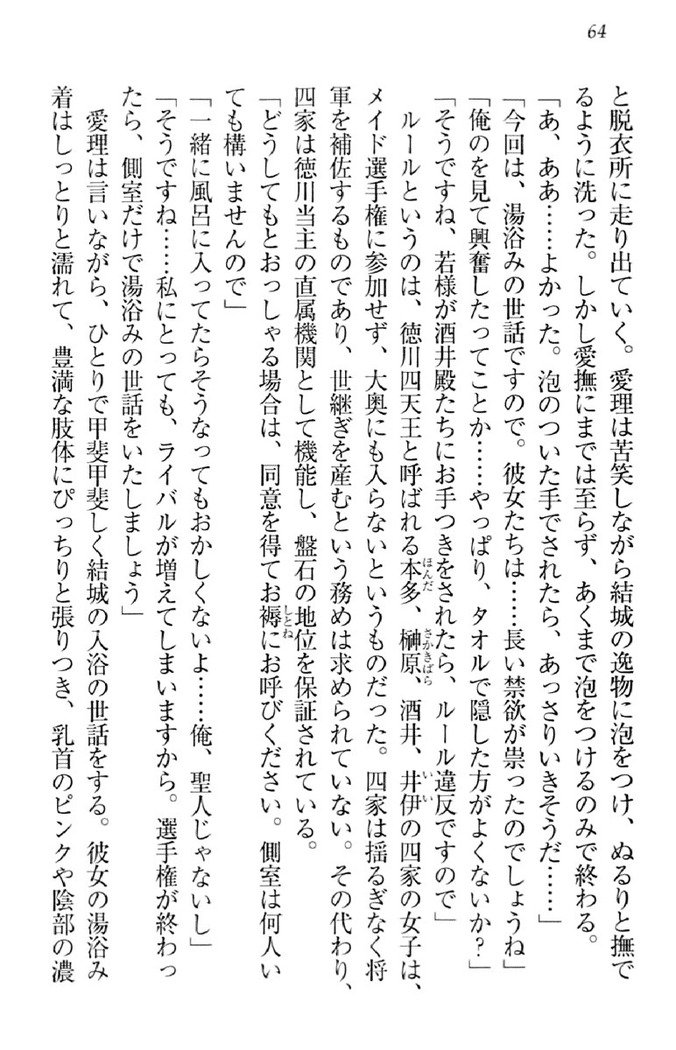 64
と脱衣所に走り出ていく。愛理は苦笑しながら結城の逸物に泡をつけ、ぬるりと撫で
るように洗った。しかし愛撫にまでは至らず、あくまで泡をつけるのみで終わる。
「あ、ああ……よかった。泡のついた手でされたら、あっさりいきそうだ……」
「今回は、湯浴みの世話ですので。彼女たちは……長い禁欲が祟ったのでしょうね」
「俺のを見て興奮したってことか……やっぱり、タオルで隠した方がよくないか？」
「そうですね、若様が酒井殿たちにお手つきをされたら、ルール違反ですので」
ルールというのは、徳川四天王と呼ばれる本多、榊原、酒井、井伊の四家の女子は、
メイド選手権に参加せず、大奥にも入らないというものだった。四家は揺るぎなく将
軍を補佐するものであり、世継ぎを産むという務めは求められていない。その代わり、
四家は徳川当主の直属機関として機能し、盤石の地位を保証されている。
「どうしてもとおっしゃる場合は、同意を得てお褥にお呼びください。側室は何人い
ても構いませんので」
「一緒に風呂に入ってたらそうなってもおかしくないよ……俺、聖人じゃないし」
「そうですね……私にとっても、ライバルが増えてしまいますから。選手権が終わっ
たら、側室だけで湯浴みの世話をいたしましょう」
愛理は言いながら、ひとりで甲斐甲斐しく結城の入浴の世話をする。彼女の湯浴み
着はしっとりと濡れて、豊満な肢体にぴっちりと張りつき、乳首のピンクや陰部の濃